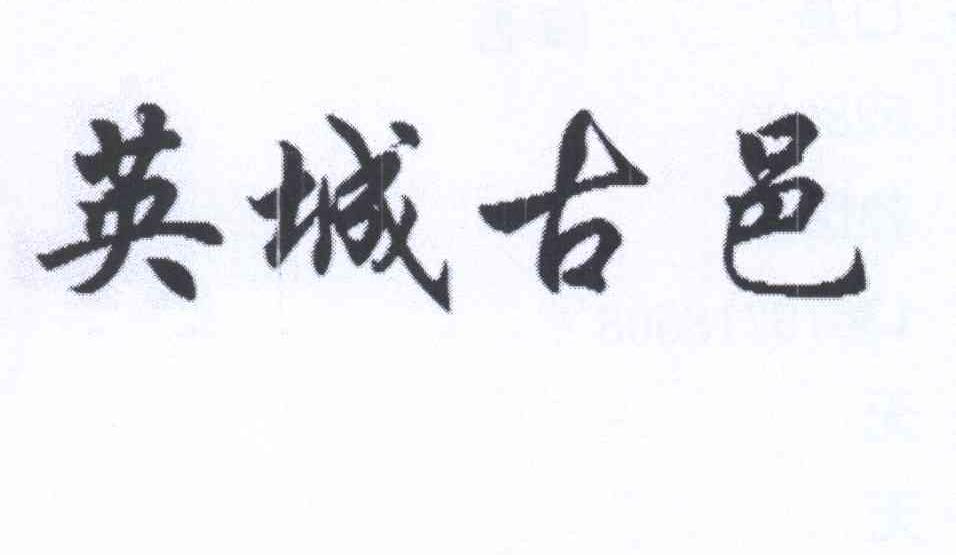 英城古邑